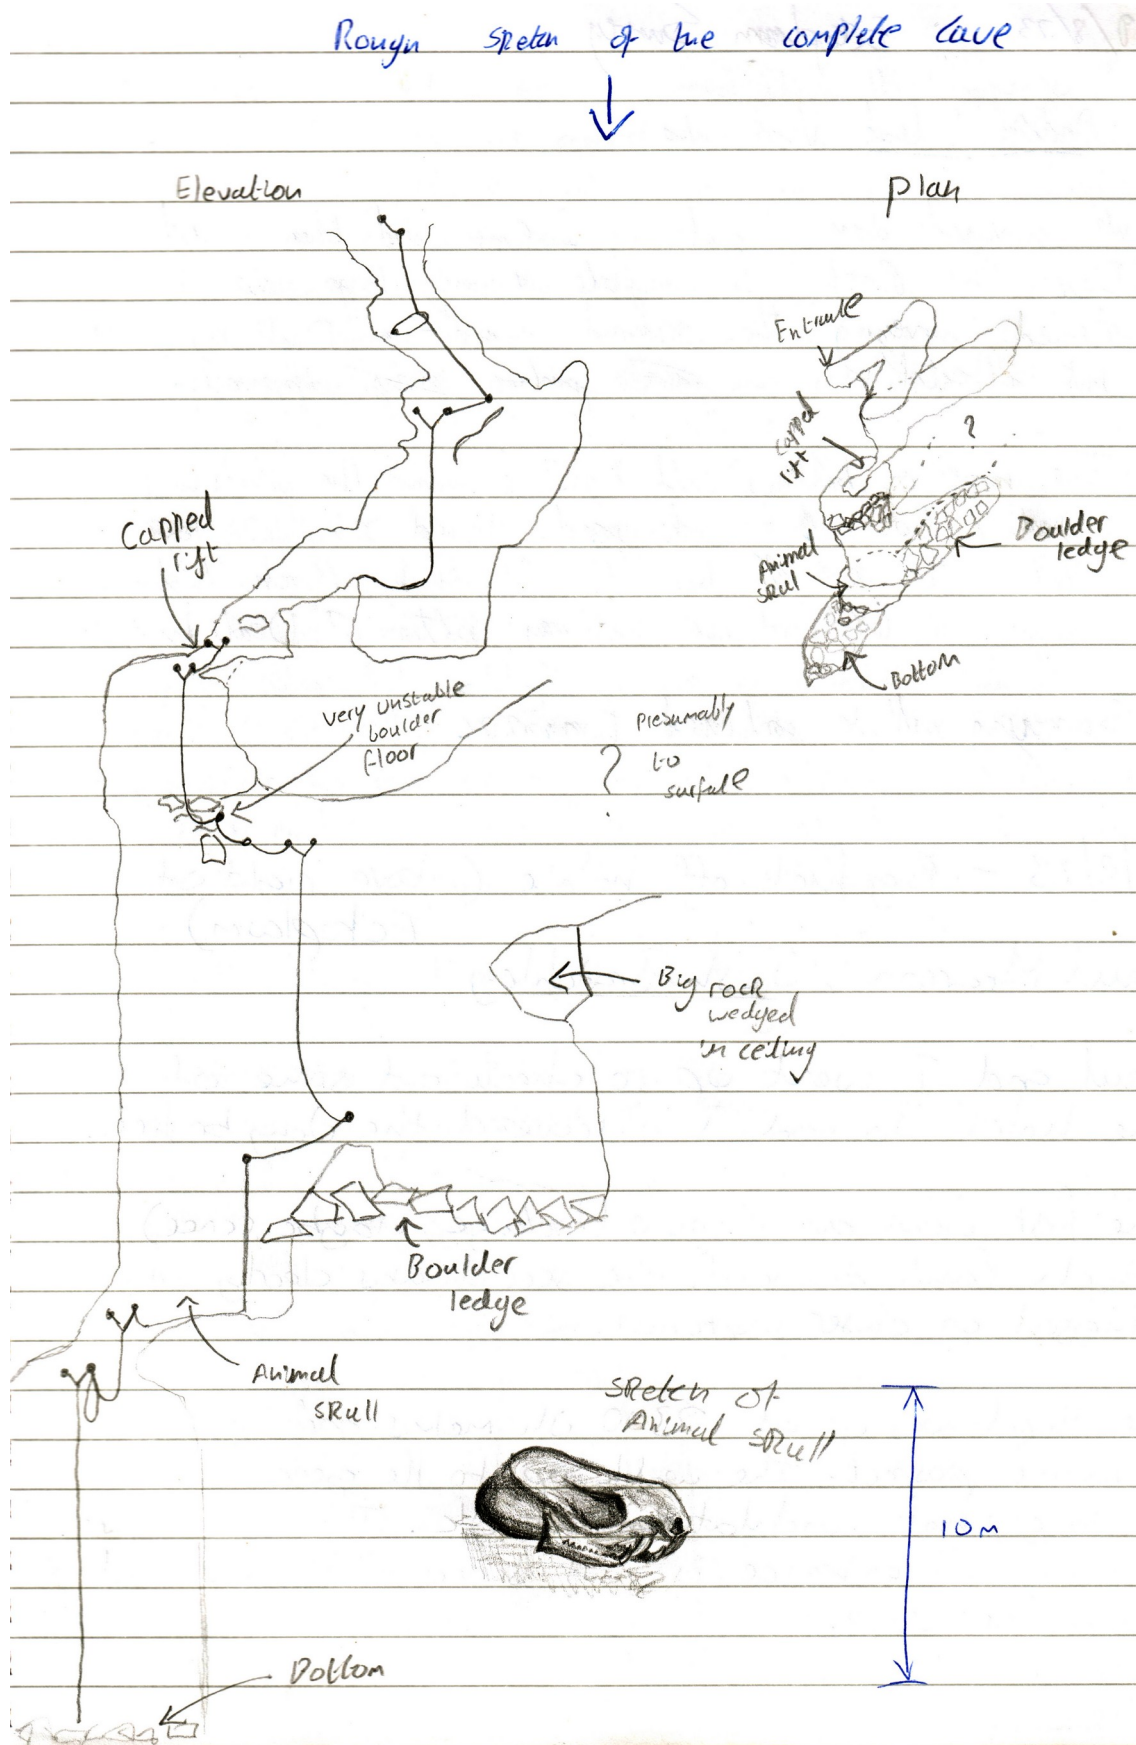 Rough sketch of the complete cave
Elevation
Plan
Entrance
Capped
rift
Capped
rift
?
Boulder
ledge
Animal
skull
Bottom
Very unstable
boulder
floor
?
Presumably
to
surface
Big rock
wedged
in ceiling
Boulder
ledge
Animal
skull
Sketch of
Animal skull
10m
Bottom